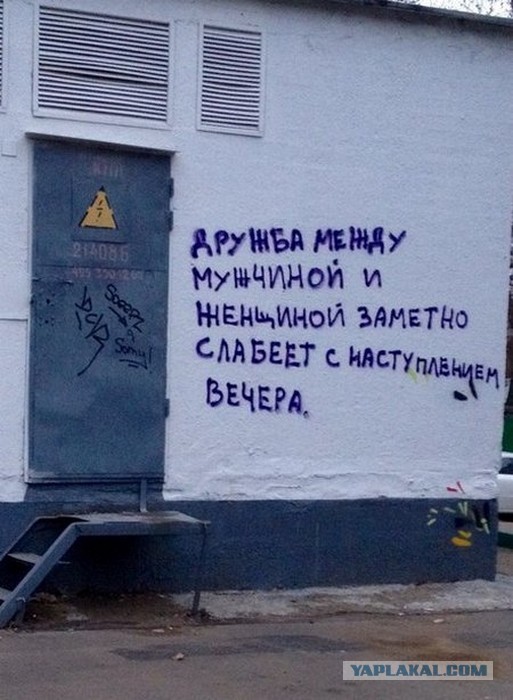 21408Б
ДРУЖБА МЕЖДУ
МУЖЧИНОЙ И
ЖЕНЩИНОЙ ЗАМЕТНО
СЛАБЕЕТ С НАСТУПЛЕНИЕМ
ВЕЧЕРА.
YAPLAKAL.COM